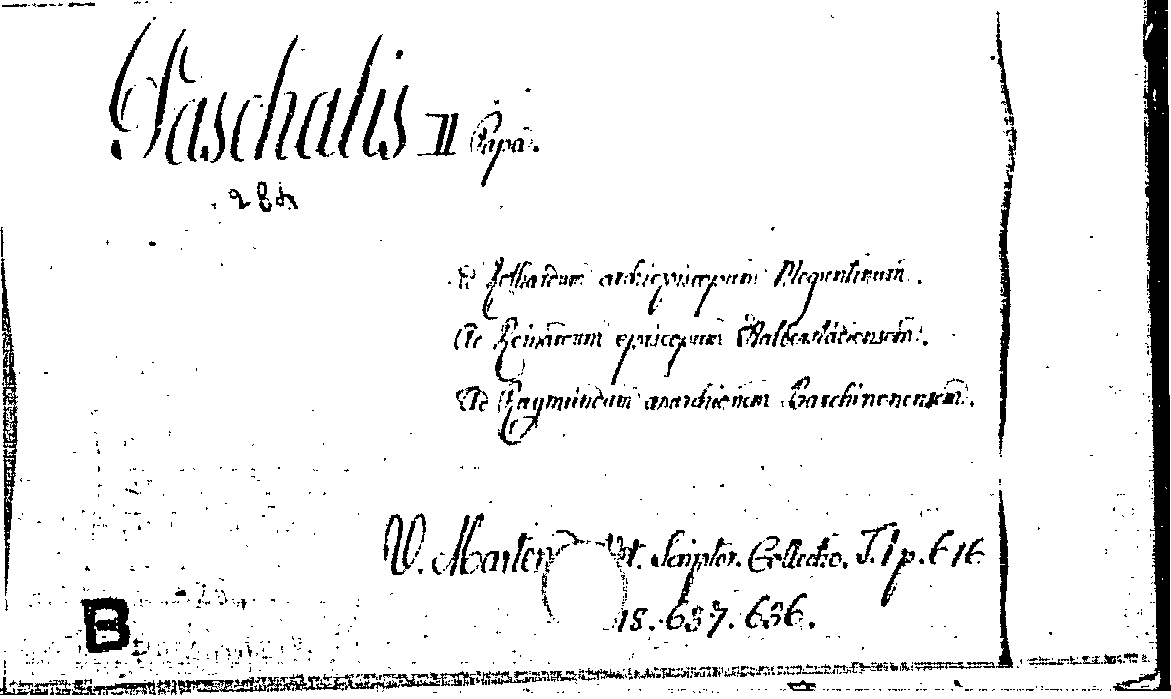 Paschalis II Papa.
284
Ad Rothardum archiepiscopum Moguntinum.
Ad Reinardum episcopum Halberstadiensem.
Ad Raymundum Barchinonensem.
V. Marten Vet. Scriptor. Collectio. T. I p. 616
18. 637. 636.
B